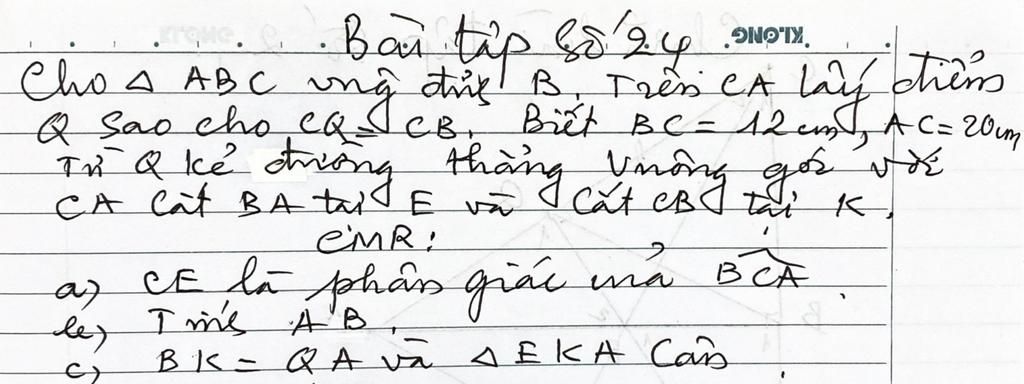 Bài tập số 24
Cho Δ ABC vuông đỉnh B. Trên CA lấy điểm
Q sao cho CQ = CB. Biết BC = 12cm, AC = 20cm
Từ Q kẻ đường thẳng vuông góc với
CA cắt BA tại E và cắt CB tại K.
CMR:
a) CE là phân giác của BCA.
b) Tính AB.
c) BK = QA và Δ EKA cân
KLONG